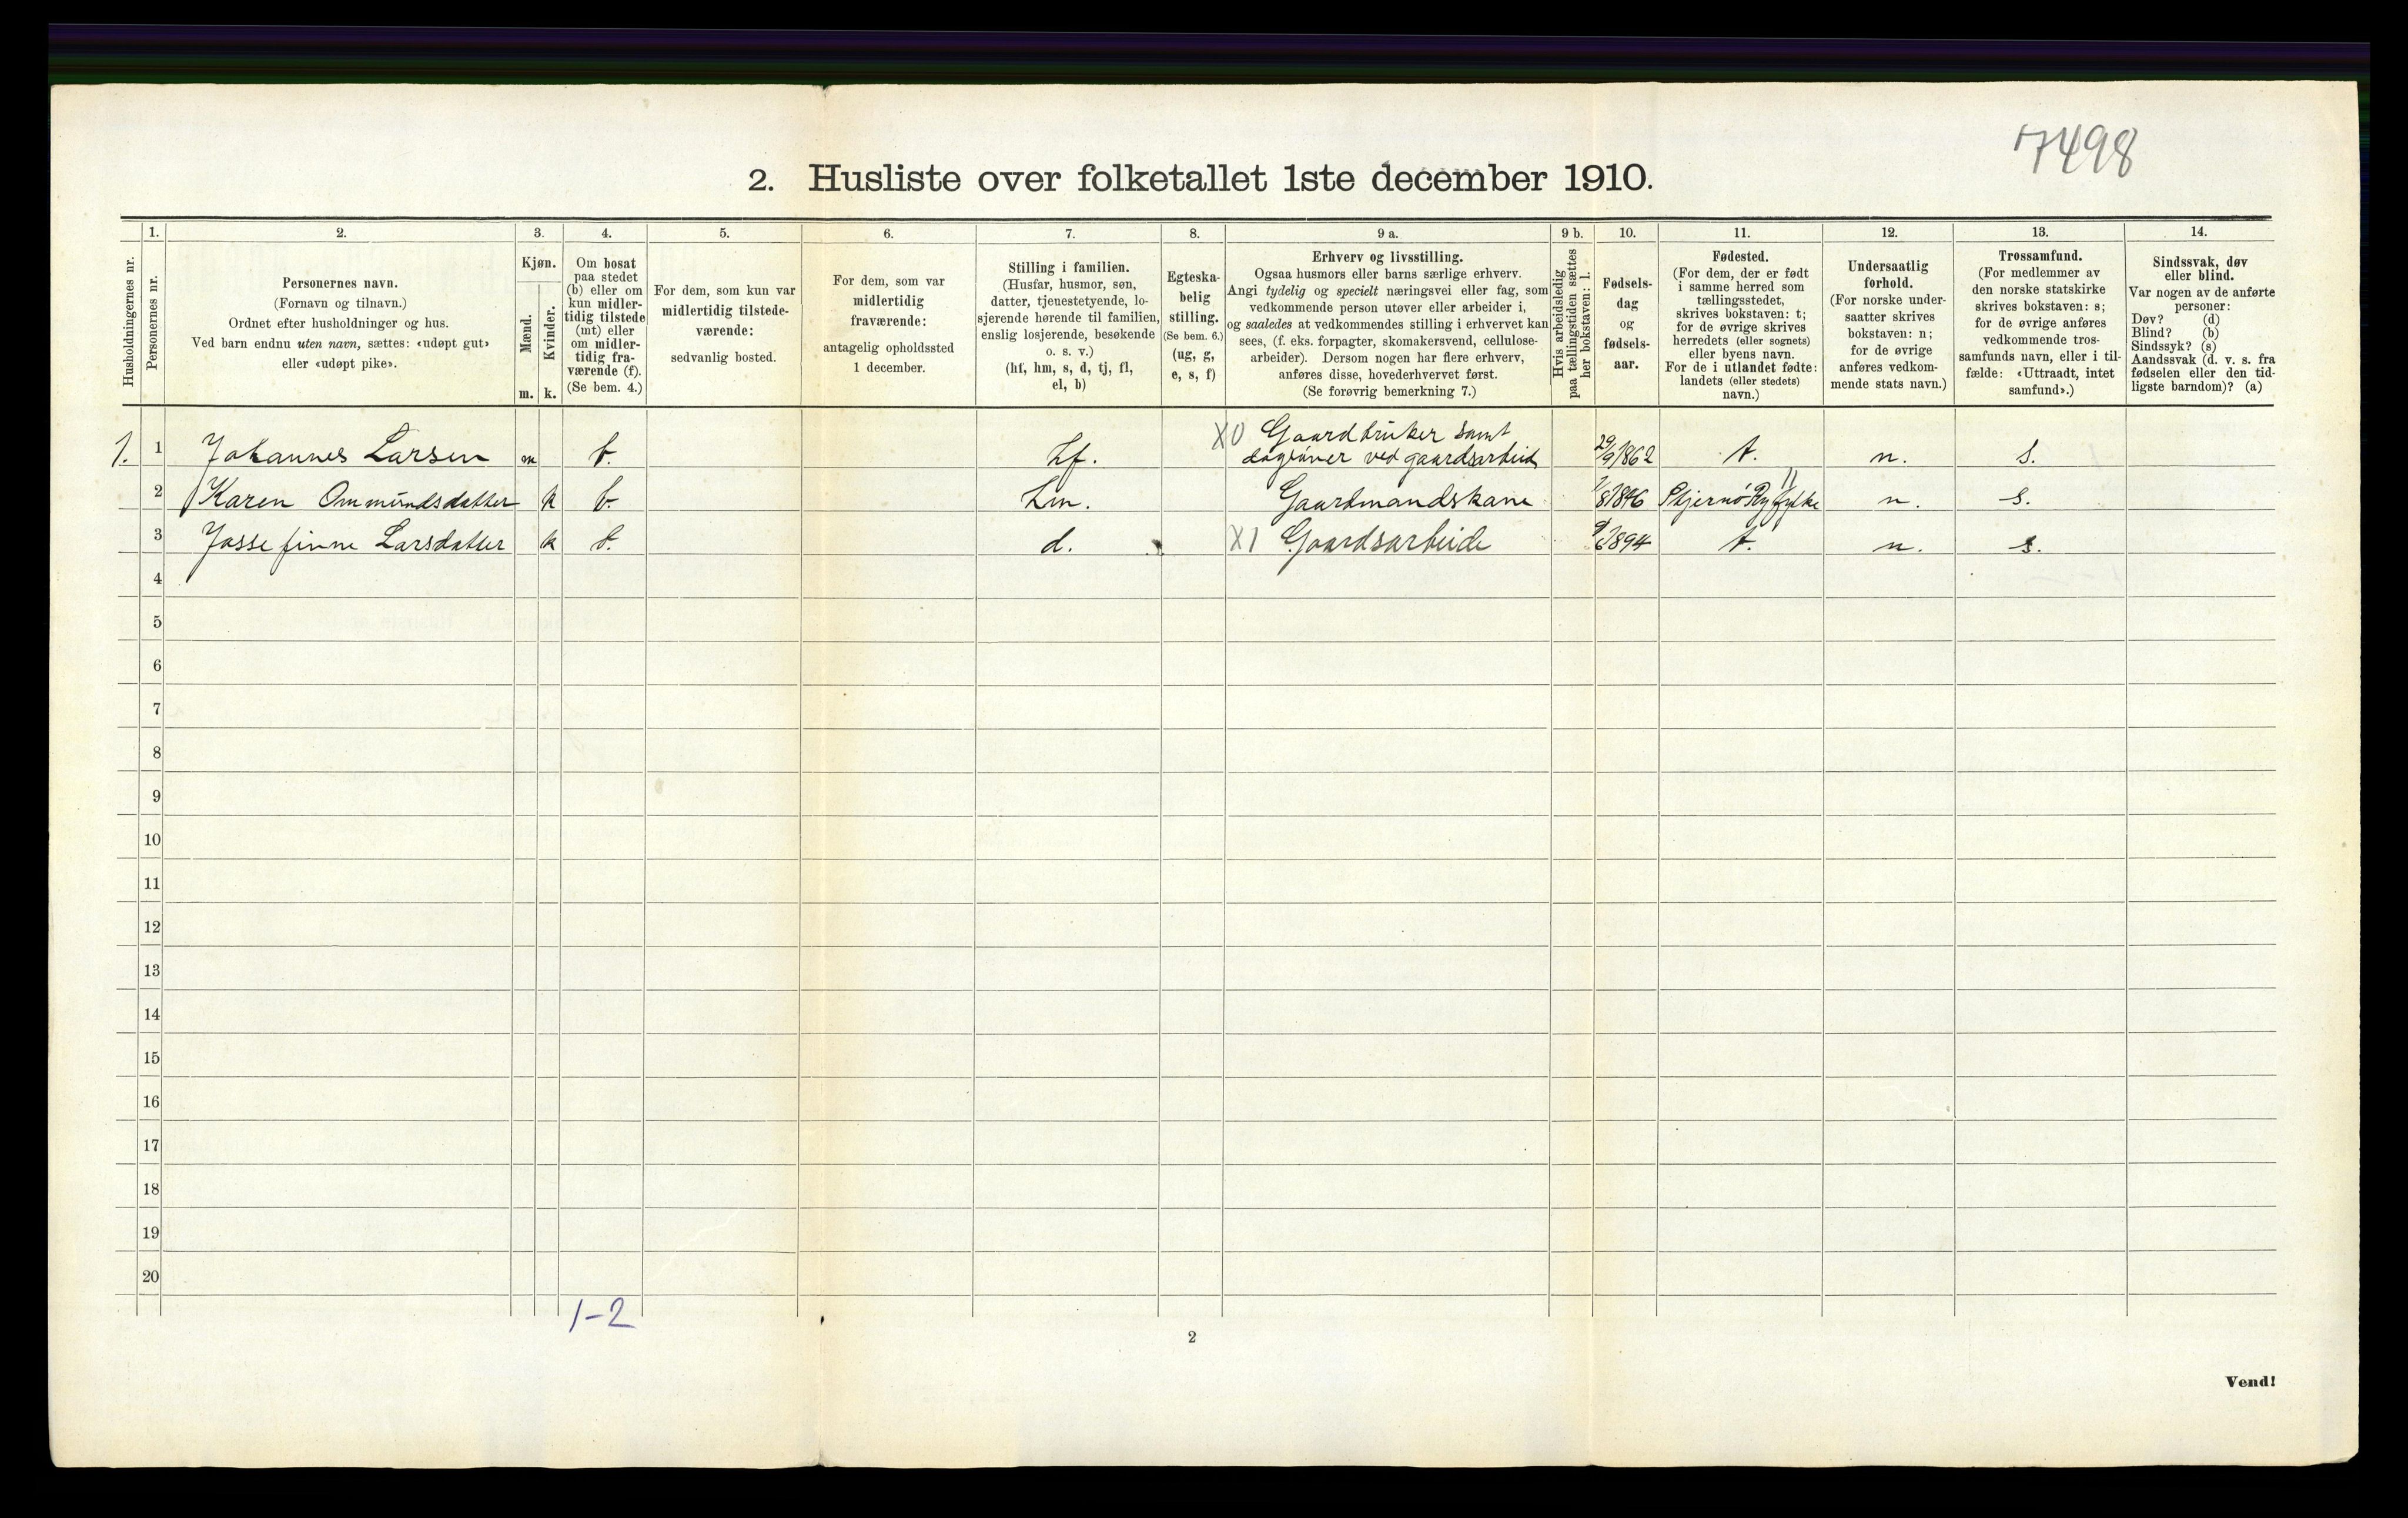 7498
2. Husliste over folketallet 1ste december 1910.
1. 2. 3. 4. 5. 6. 7. 8. 9 a. 9 b. 10. 11. 12. 13. 14.
Husholdningernes nr.
Personernes nr.
Personernes navn.
(Fornavn og tilnavn.)
Ordnet efter husholdninger og hus.
Ved barn endnu uten navn, sættes: «udøpt gut»
eller «udøpt pike».
Kjøn.
Mænd.
Kvinder.
m. k.
Om bosat
paa stedet
(b) eller om
kun midler-
tidig tilstede
(mt) eller
om midler-
tidig fra-
værende (f).
(Se bem. 4.)
For dem, som kun var
midlertidig tilstede-
værende:
sedvanlig bosted.
For dem, som var
midlertidig
fraværende:
antagelig opholdssted
1 december.
Stilling i familien.
(Husfar, husmor, søn,
datter, tjenestetyende, lo-
sjerende hørende til familien,
enslig losjerende, besøkende
o. s. v.)
(hf, hm, s, d, tj, fl,
el, b)
Egteska-
belig
stilling.
(Se bem. 6.)
(ug, g,
e, s, f)
Erhverv og livsstilling.
Ogsaa husmors eller barns særlige erhverv.
Angi tydelig og specielt næringsvei eller fag, som
vedkommende person utøver eller arbeider i,
og saaledes at vedkommendes stilling i erhvervet kan
sees, (f. eks. forpagter, skomakersvend, cellulose-
arbeider). Dersom nogen har flere erhverv,
anføres disse, hovederhvervet først.
(Se forøvrig bemerkning 7.)
Hvis arbeidsledig
paa tællingstiden sættes
her bokstaven: l.
Fødsels-
dag
og
fødsels-
aar.
Fødested.
(For dem, der er født
i samme herred som
tællingsstedet,
skrives bokstaven: t;
for de øvrige skrives
herredets (eller sognets)
eller byens navn.
For de i utlandet fødte:
landets (eller stedets)
navn.)
Undersaatlig
forhold.
(For norske under-
saatter skrives
bokstaven: n;
for de øvrige
anføres vedkom-
mende stats navn.)
Trossamfund.
(For medlemmer av
den norske statskirke
skrives bokstaven: s;
for de øvrige anføres
vedkommende tros-
samfunds navn, eller i til-
fælde: «Uttraadt, intet
samfund».)
Sindssvak, døv
eller blind.
Var nogen av de anførte
personer:
Døv? (d)
Blind? (b)
Sindssyk? (s)
Aandssvak (d. v. s. fra
fødselen eller den tid-
ligste barndom)? (a)
X0 Gaardbruker samt
1. 1 Johannes Larsen m b. hf. dagløner ved gaardsarbeid 29/9 1862 t. n. s.
2 Karen Ommundsdatter k b. hm. Gaardmandskone 1/8 1846 Stjernø Ryfylke n. s.
3 Jossefinne Larsdatter k b. d. X1 Gaardsarbeide 9/6 1894 t. n. s.
4
5
6
7
8
9
10
11
12
13
14
15
16
17
18
19
20
1-2
2
Vend!